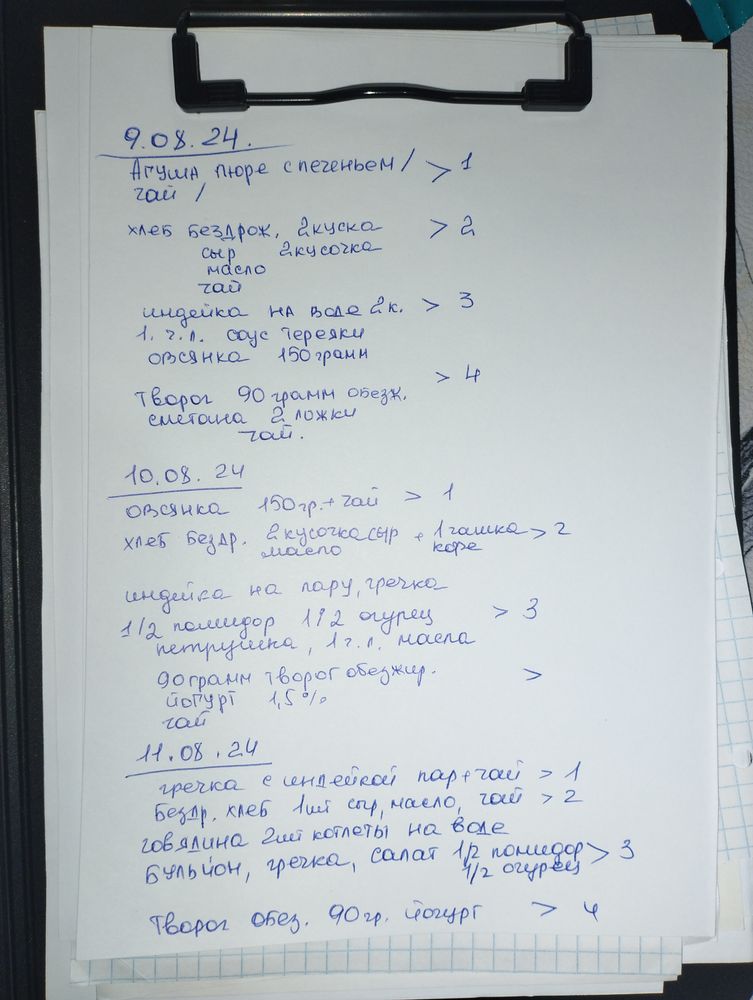 9.08.24.
Агуша пюре с печеньем / > 1
чай /
хлеб бездрож. 2 куска > 2
сыр 2 кусочка
масло
чай
индейка на воде 2к. > 3
1. ч.л. соус терияки
овсянка 150 грамм
> 4
творог 90 грамм обезж.
сметана 2 ложки
чай.
10.08.24
овсянка 150 гр. + чай > 1
хлеб бездр. 2 кусочка сыр + 1 чашка > 2
масло кофе
индейка на пару, гречка
1/2 помидор 1/2 огурец > 3
петрушка, 1 ч.л. масла
90 грамм творог обезжир. >
йогурт 1,5 %
чай
11.08.24
гречка с индейкой пар + чай > 1
Бездр. хлеб 1 шт сыр, масло, чай > 2
говядина 2 шт котлеты на воде
бульйон, гречка, салат 1/2 помидор > 3
1/2 огурец
творог обез. 90 гр. йогурт > 4